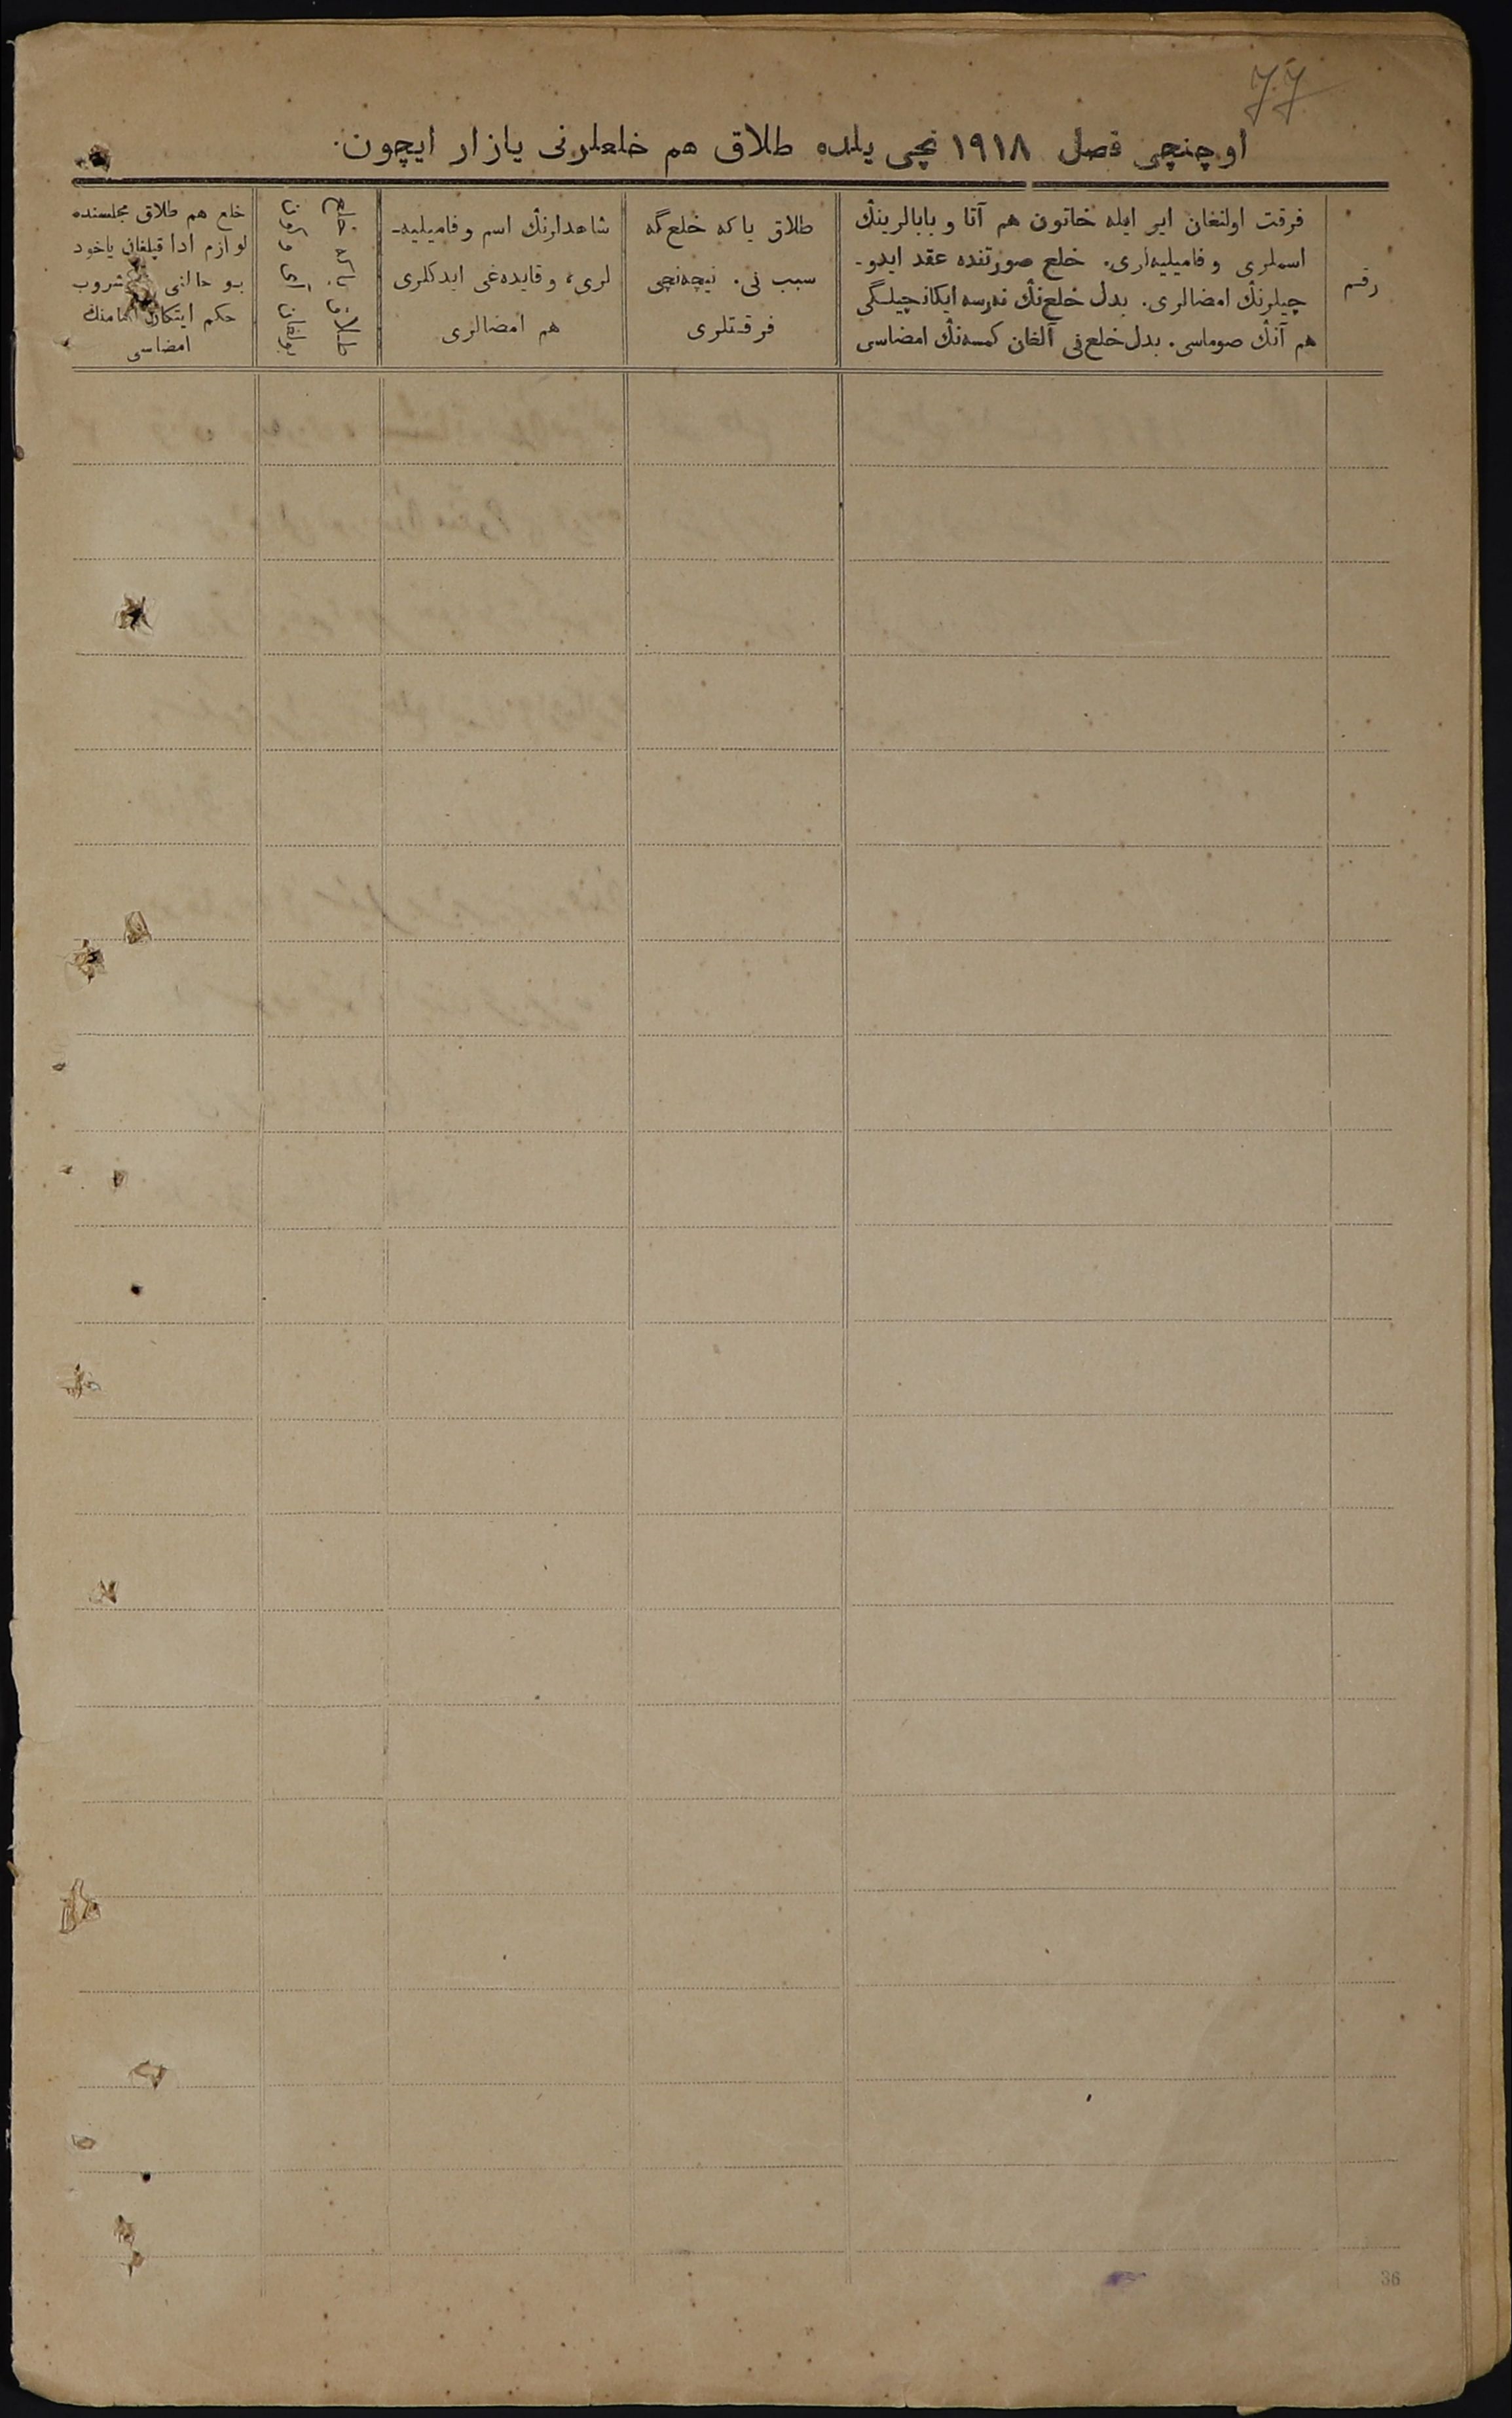 77
اوچنچی فصل ١٩١٨ نچی یلده طلاق هم خلعلرنی یازار ایچون.
رقم
فرقت اولنغان ایر ایله خاتون هم آتا و بابالرینڭ
اسملری و فامیلیه‌لری. خلع صورتنده عقد ایدو-
چیلرنڭ امضالری. بدل خلع‌نڭ نەرسه ایکانچیلگی
هم آنڭ صوماسی. بدل خلع‌نی آلغان کمسه‌نڭ امضاسی
طلاق یا که خلع گه
سبب نی. نیچه‌نچی
فرقتلری
شاهدلرنڭ اسم و فامیلیه-
لری، و قایده‌غی ایدکلری
هم امضالری
طلاق یا که خلع
بولغان آی و کون
خلع هم طلاق مجلسنده
لوازم ادا قیلغان یاخود
بو حالنی شروب
حکم ایتکان امامنڭ
امضاسی
36